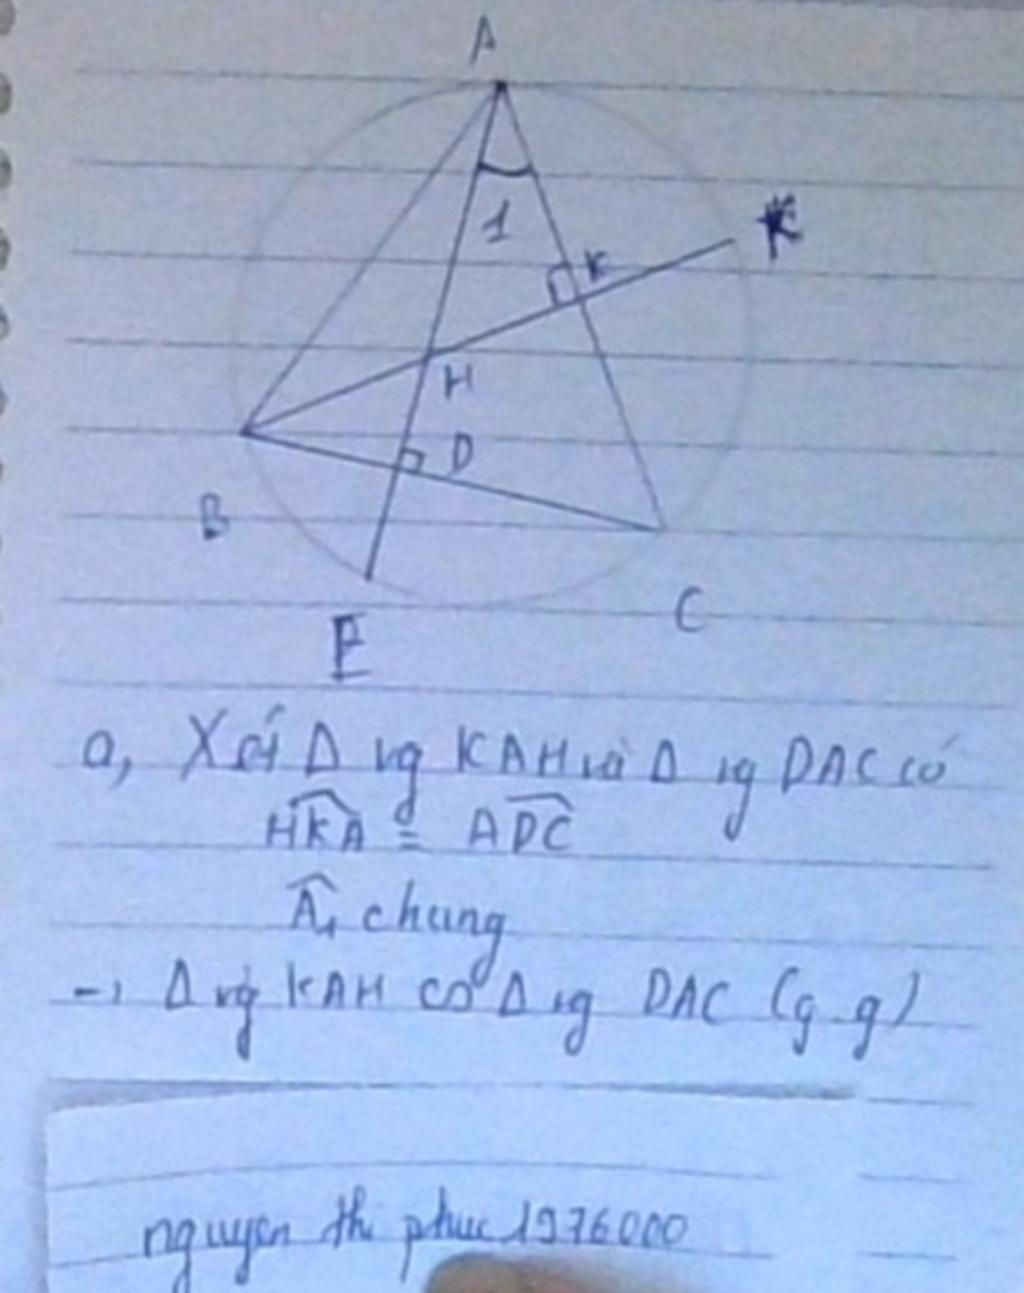 A
1
K
K
H
D
B
E
C
a, Xét Δ vg KAH và Δ vg DAC có
HKA = ADC
Â₁ chung
→ Δ vg KAH ∽ Δ vg DAC (g.g)
nguyen thi phuc 1976000